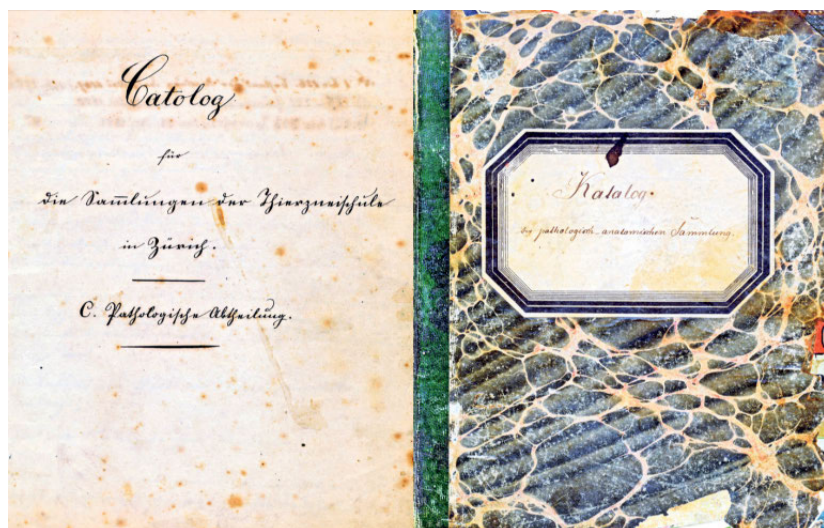 Catolog
für
die Sam̄lungen der Thierzneischule
in Zürich.
C. Pathologische Abtheilung.
Katalog.
der pathologisch-anatomischen Sammlung.